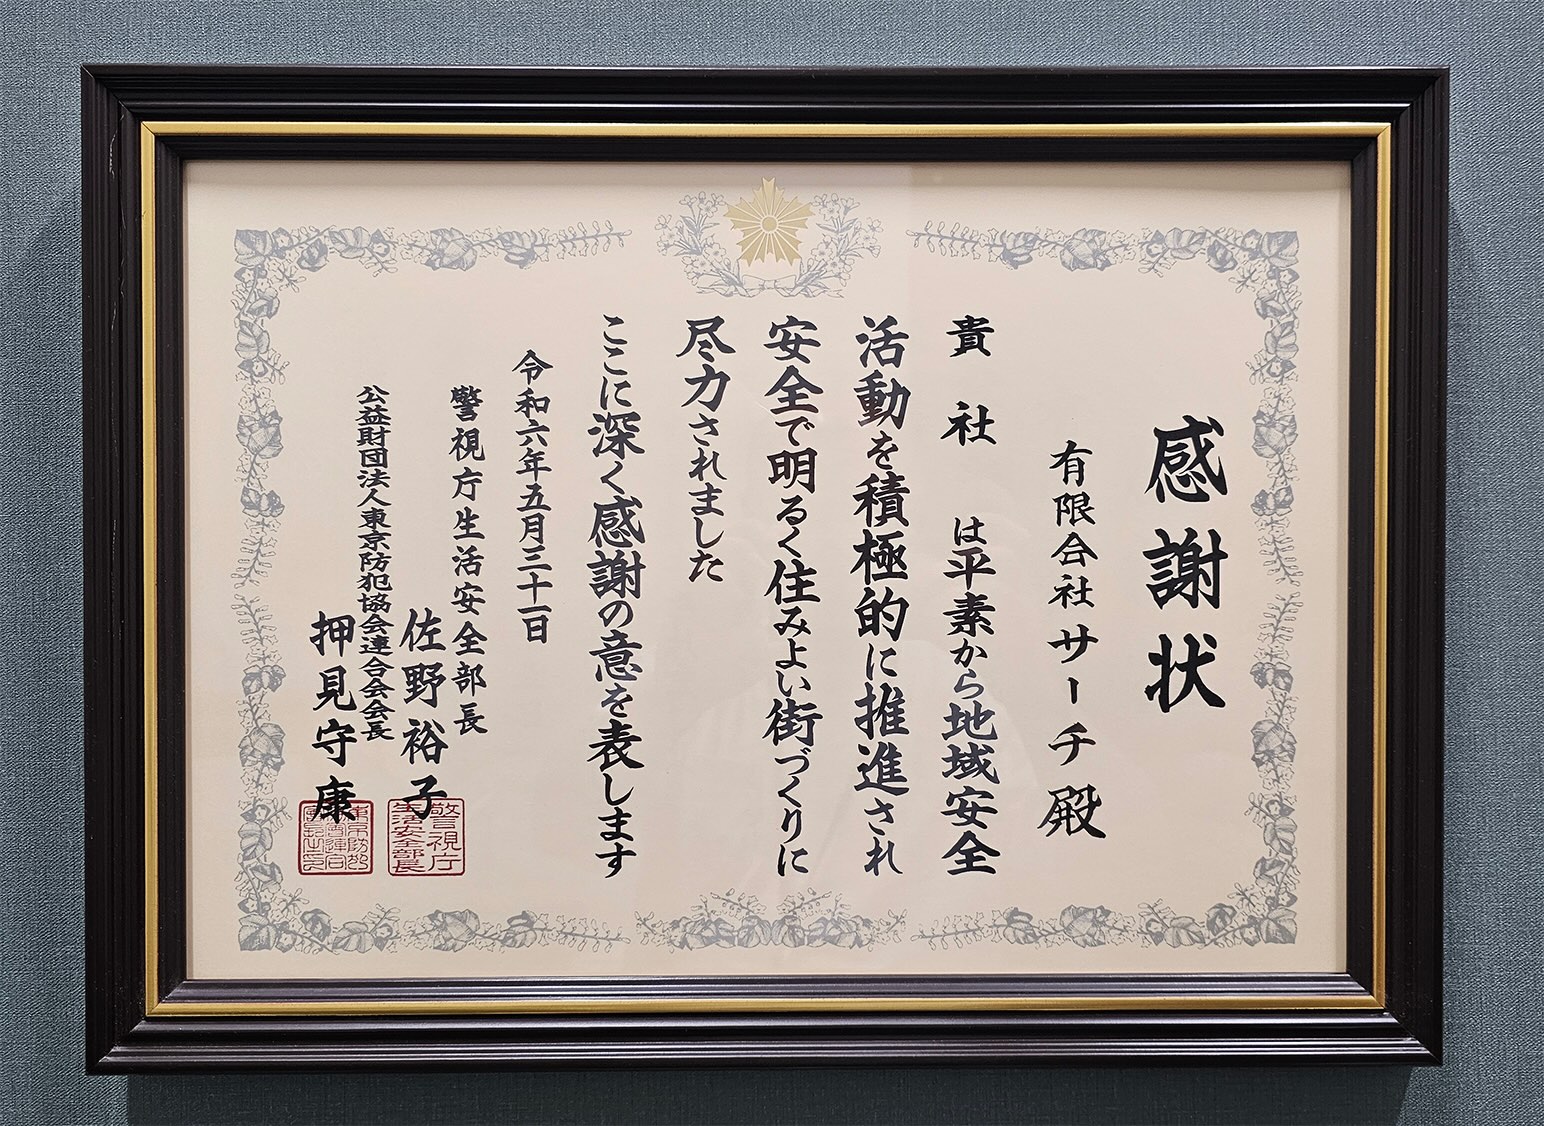 感謝状
有限会社サーチ殿
貴社は平素から地域安全
活動を積極的に推進され
安全で明るく住みよい街づくりに
尽力されました
ここに深く感謝の意を表します
令和六年五月三十一日
警視庁生活安全部長
佐野裕子
警視庁
生活安全部長
公益財団法人東京防犯協会連合会会長
押見守康